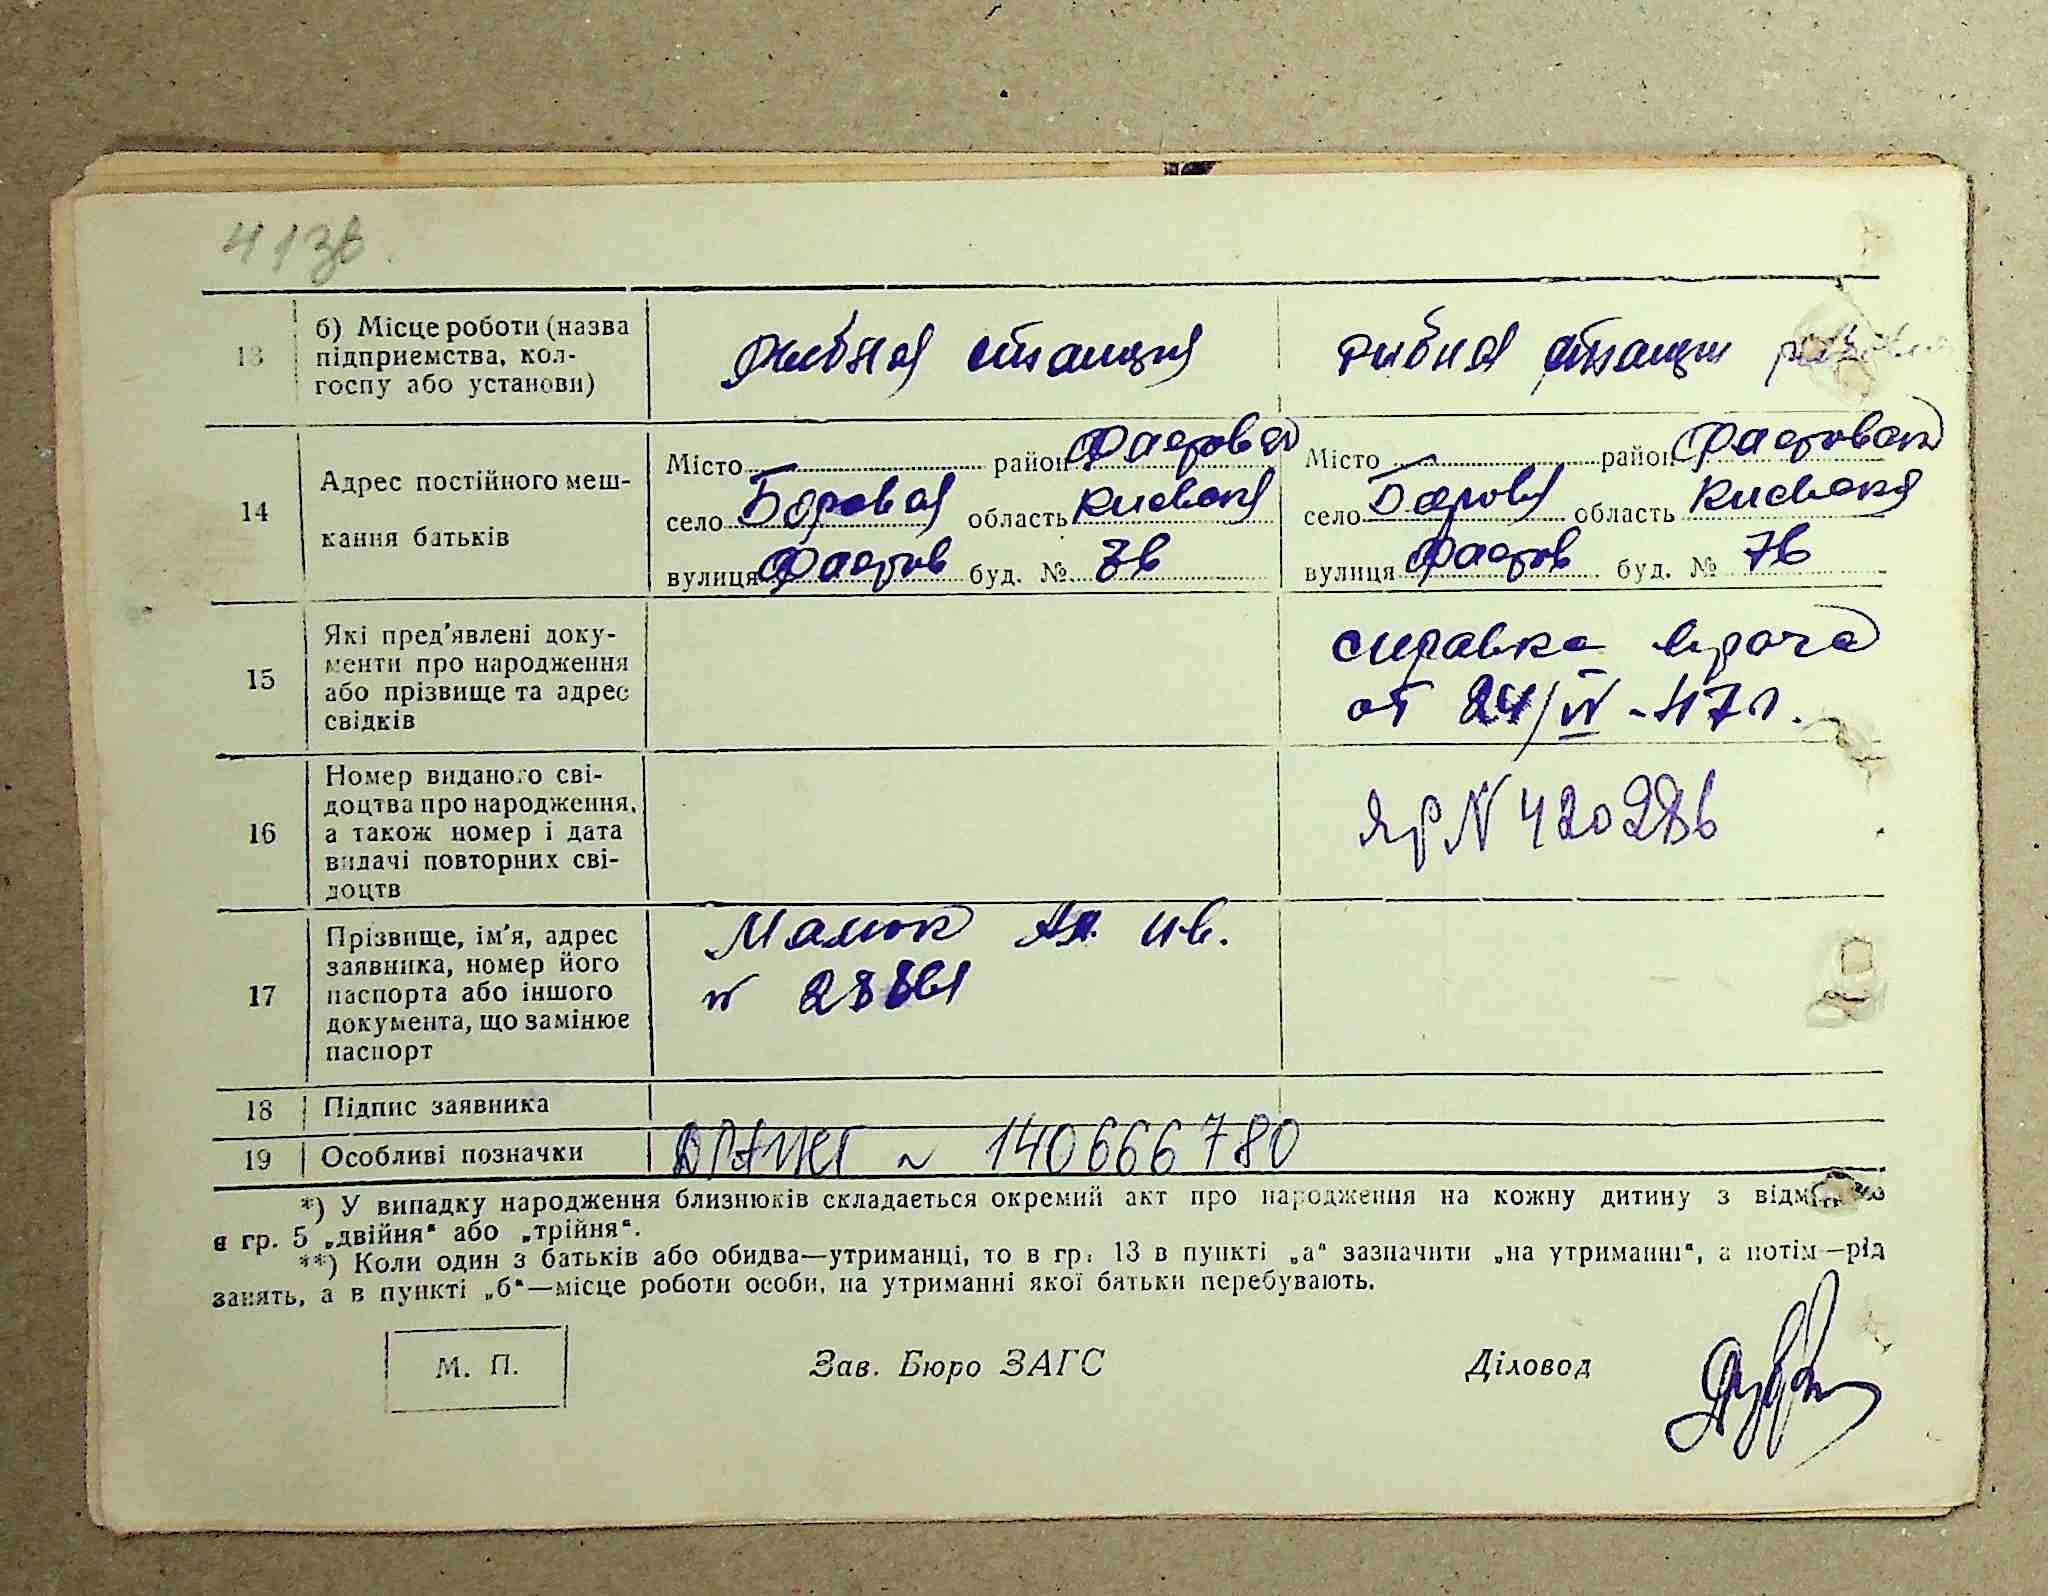 413в.
13
б) Місце роботи (назва
підприємства, кол-
госпу або установи)
рибная станция
рибная станция
14
Адрес постійного меш-
кання батьків
Місто район Фастовск
село Боровая область Киевская
вулиця Фастов буд. №
Місто район Фастовск
село Боровая область Киевская
вулиця Фастов буд. № 7в
15
Які пред'явлені доку-
менти про народження
або прізвище та адрес
свідків
справка врача
от 24/IV-47г.
16
Номер виданого сві-
доцтва про народження,
а також номер і дата
видачі повторних сві-
доцтв
ЯР N 420286
17
Прізвище, ім'я, адрес
заявника, номер його
паспорта або іншого
документа, що замінює
паспорт
Мамок Ив.
18
Підпис заявника
19
Особливі позначки
140666780
*) У випадку народження близнюків складається окремий акт про народження на кожну дитину з відміткою
в гр. 5 „двійня“ або „трійня“.
**) Коли один з батьків або обидва—утриманці, то в гр. 13 в пункті „а“ зазначити „на утриманні“, а потім—рід
занять, а в пункті „б“—місце роботи особи, на утриманні якої батьки перебувають.
М. П.
Зав. Бюро ЗАГС
Діловод